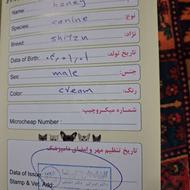 Name: honey
نوع:
Species: canine
نژاد:
Breed: shitzu
تاریخ تولد:
Date of Birth:
جنس:
Sex: male
رنگ:
Color: cream
شماره میکروچیپ:
Microcheap Number :
تاریخ تنظیم مهر و امضای دامپزشک
Date of Issue
Stamp & Vet. Add: